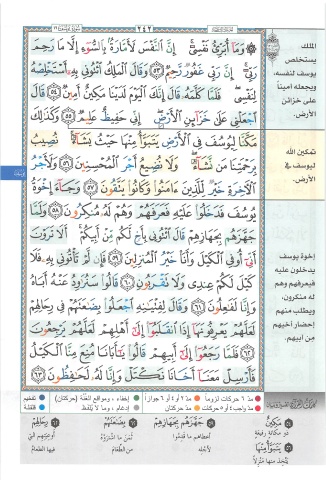 ٢٤٢
وَمَآ أُبَرِّئُ نَفْسِىٓ ۚ إِنَّ ٱلنَّفْسَ لَأَمَّارَةٌۢ بِٱلسُّوٓءِ إِلَّا مَا رَحِمَ
رَبِّىٓ ۚ إِنَّ رَبِّى غَفُورٌ رَّحِيمٌ ٥٣ وَقَالَ ٱلْمَلِكُ ٱئْتُونِى بِهِۦٓ أَسْتَخْلِصْهُ
لِنَفْسِى ۖ فَلَمَّا كَلَّمَهُۥ قَالَ إِنَّكَ ٱلْيَوْمَ لَدَيْنَا مَكِينٌ أَمِينٌ ٥٤ قَالَ
ٱجْعَلْنِى عَلَىٰ خَزَآئِنِ ٱلْأَرْضِ ۖ إِنِّى حَفِيظٌ عَلِيمٌ ٥٥ وَكَذَٰلِكَ
مَكَّنَّا لِيُوسُفَ فِى ٱلْأَرْضِ يَتَبَوَّأُ مِنْهَا حَيْثُ يَشَآءُ ۚ نُصِيبُ
بِرَحْمَتِنَا مَن نَّشَآءُ ۖ وَلَا نُضِيعُ أَجْرَ ٱلْمُحْسِنِينَ ٥٦ وَلَأَجْرُ
ٱلْءَاخِرَةِ خَيْرٌ لِّلَّذِينَ ءَامَنُوا۟ وَكَانُوا۟ يَتَّقُونَ ٥٧ وَجَآءَ إِخْوَةُ
يُوسُفَ فَدَخَلُوا۟ عَلَيْهِ فَعَرَفَهُمْ وَهُمْ لَهُۥ مُنكِرُونَ ٥٨ وَلَمَّا
جَهَّزَهُم بِجَهَازِهِمْ قَالَ ٱئْتُونِى بِأَخٍ لَّكُم مِّنْ أَبِيكُمْ ۚ أَلَا تَرَوْنَ
أَنِّىٓ أُوفِى ٱلْكَيْلَ وَأَنَا۠ خَيْرُ ٱلْمُنزِلِينَ ٥٩ فَإِن لَّمْ تَأْتُونِى بِهِۦ فَلَا
كَيْلَ لَكُمْ عِندِى وَلَا تَقْرَبُونِ ٦٠ قَالُوا۟ سَنُرَٰوِدُ عَنْهُ أَبَاهُ
وَإِنَّا لَفَٰعِلُونَ ٦١ وَقَالَ لِفِتْيَٰنِهِ ٱجْعَلُوا۟ بِضَٰعَتَهُمْ فِى رِحَالِهِمْ
لَعَلَّهُمْ يَعْرِفُونَهَآ إِذَا ٱنقَلَبُوٓا۟ إِلَىٰٓ أَهْلِهِمْ لَعَلَّهُمْ يَرْجِعُونَ
٦٢ فَلَمَّا رَجَعُوٓا۟ إِلَىٰٓ أَبِيهِمْ قَالُوا۟ يَٰٓأَبَانَا مُنِعَ مِنَّا ٱلْكَيْلُ
فَأَرْسِلْ مَعَنَآ أَخَانَا نَكْتَلْ وَإِنَّا لَهُۥ لَحَٰفِظُونَ ٦٣
الملك
يستخلص
يوسف لنفسه،
ويجعله أميناً
على خزائن
الأرض.
تمكين الله
ليوسف في
الأرض.
إخوة يوسف
يدخلون عليه
فيعرفهم وهم
له منكرون،
ويطلب منهم
إحضار أخيهم
من أبيهم.
مدّ ٦ حركات لزوماً مدّ ٢ أو ٤ أو ٦ جوازاً إخفاء، ومواقع الغُنَّة (حركتان) تفخيم
مدّ واجب ٤ أو ٥ حركات مدّ حركتان إدغام، وما لا يُلفَظ قلقلة